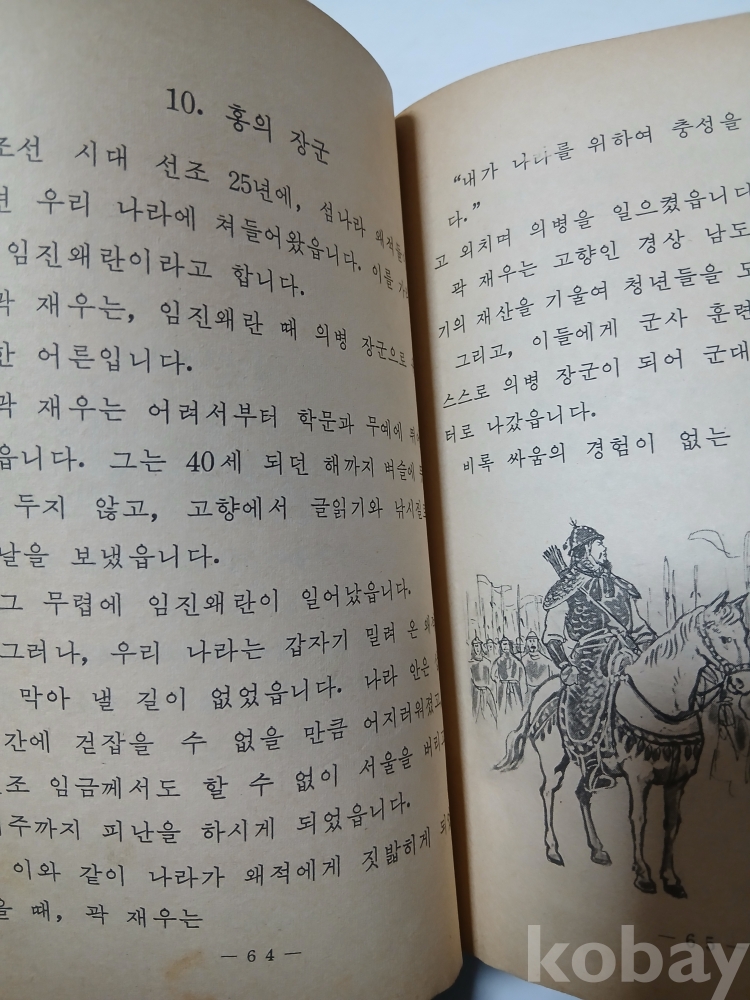 10. 홍의 장군
조선 시대 선조 25년에, 섬나라 왜적들
우리 나라에 쳐들어왔읍니다. 이를
임진왜란이라고 합니다.
곽 재우는, 임진왜란 때 의병 장군으로
한 어른입니다.
곽 재우는 어려서부터 학문과 무예에
읍니다. 그는 40세 되던 해까지 벼슬에
두지 않고, 고향에서 글읽기와 낚시질로
날을 보냈읍니다.
그 무렵에 임진왜란이 일어났읍니다.
그러나, 우리 나라는 갑자기 밀려 온 왜적
막아 낼 길이 없었읍니다. 나라 안은
간에 걷잡을 수 없을 만큼 어지러워졌고
조 임금께서도 할 수 없이 서울을 버리고
주까지 피난을 하시게 되었읍니다.
이와 같이 나라가 왜적에게 짓밟히게 되
을 때, 곽 재우는
— 64 —
“내가 나라를 위하여 충성을
다.”
고 외치며 의병을 일으켰읍니다
곽 재우는 고향인 경상 남도
기의 재산을 기울여 청년들을 모
그리고, 이들에게 군사 훈련
스스로 의병 장군이 되어 군대
터로 나갔읍니다.
비록 싸움의 경험이 없는
kobay